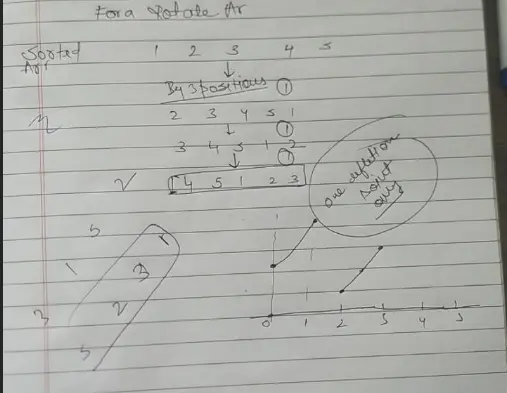 For a Rotate Ar
Sorted Arr 1 2 3 4 5
By 3 positions 1
2 3 4 5 1
1
3 4 5 1 2
1
4 5 1 2 3
one deflection point only
5
1 3
3 2
5
0 1 2 3 4 5